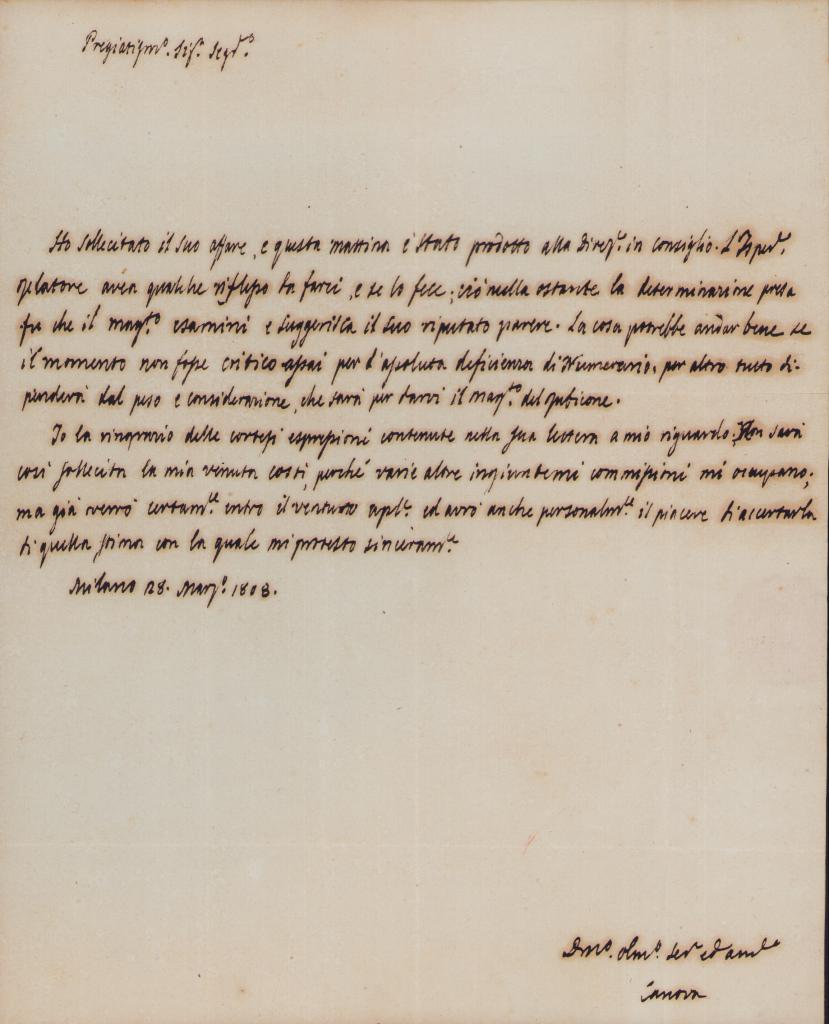 Pregiatissmo. Sigr. Segr.o
Ho sollecitato il suo affare, e questa mattina è stato prodotto alla Direz.e in consiglio. L'Isped.
Relatore avea qualche riflesso da farci, e se lo fece; ciò nulla ostante la determinazione presa
fu che il mag.to esamini e suggerisca il suo riputato parere. La cosa potrebbe andar bene se
il momento non fosse critico assai per l'assoluta deficienza di Numerario, per altro tutto di-
penderà dal peso e considerazione, che sarà per darvi il mag.to del Rubicone.
Io la ringrazio delle cortesi espressioni contenute nella sua lettera a mio riguardo. Non sarà
così sollecita la mia venuta costì, perché varie altre ingiuntemi commissioni mi occupano;
ma già verrò certam.te entro il venturo apl.e ed avrò anche personalm.te il piacere di accertarla
di quella stima con la quale mi protesto sinceram.te
Milano 28. Marz.o 1808.
Dmo. obmo. Ser.e ed am.co
Canova